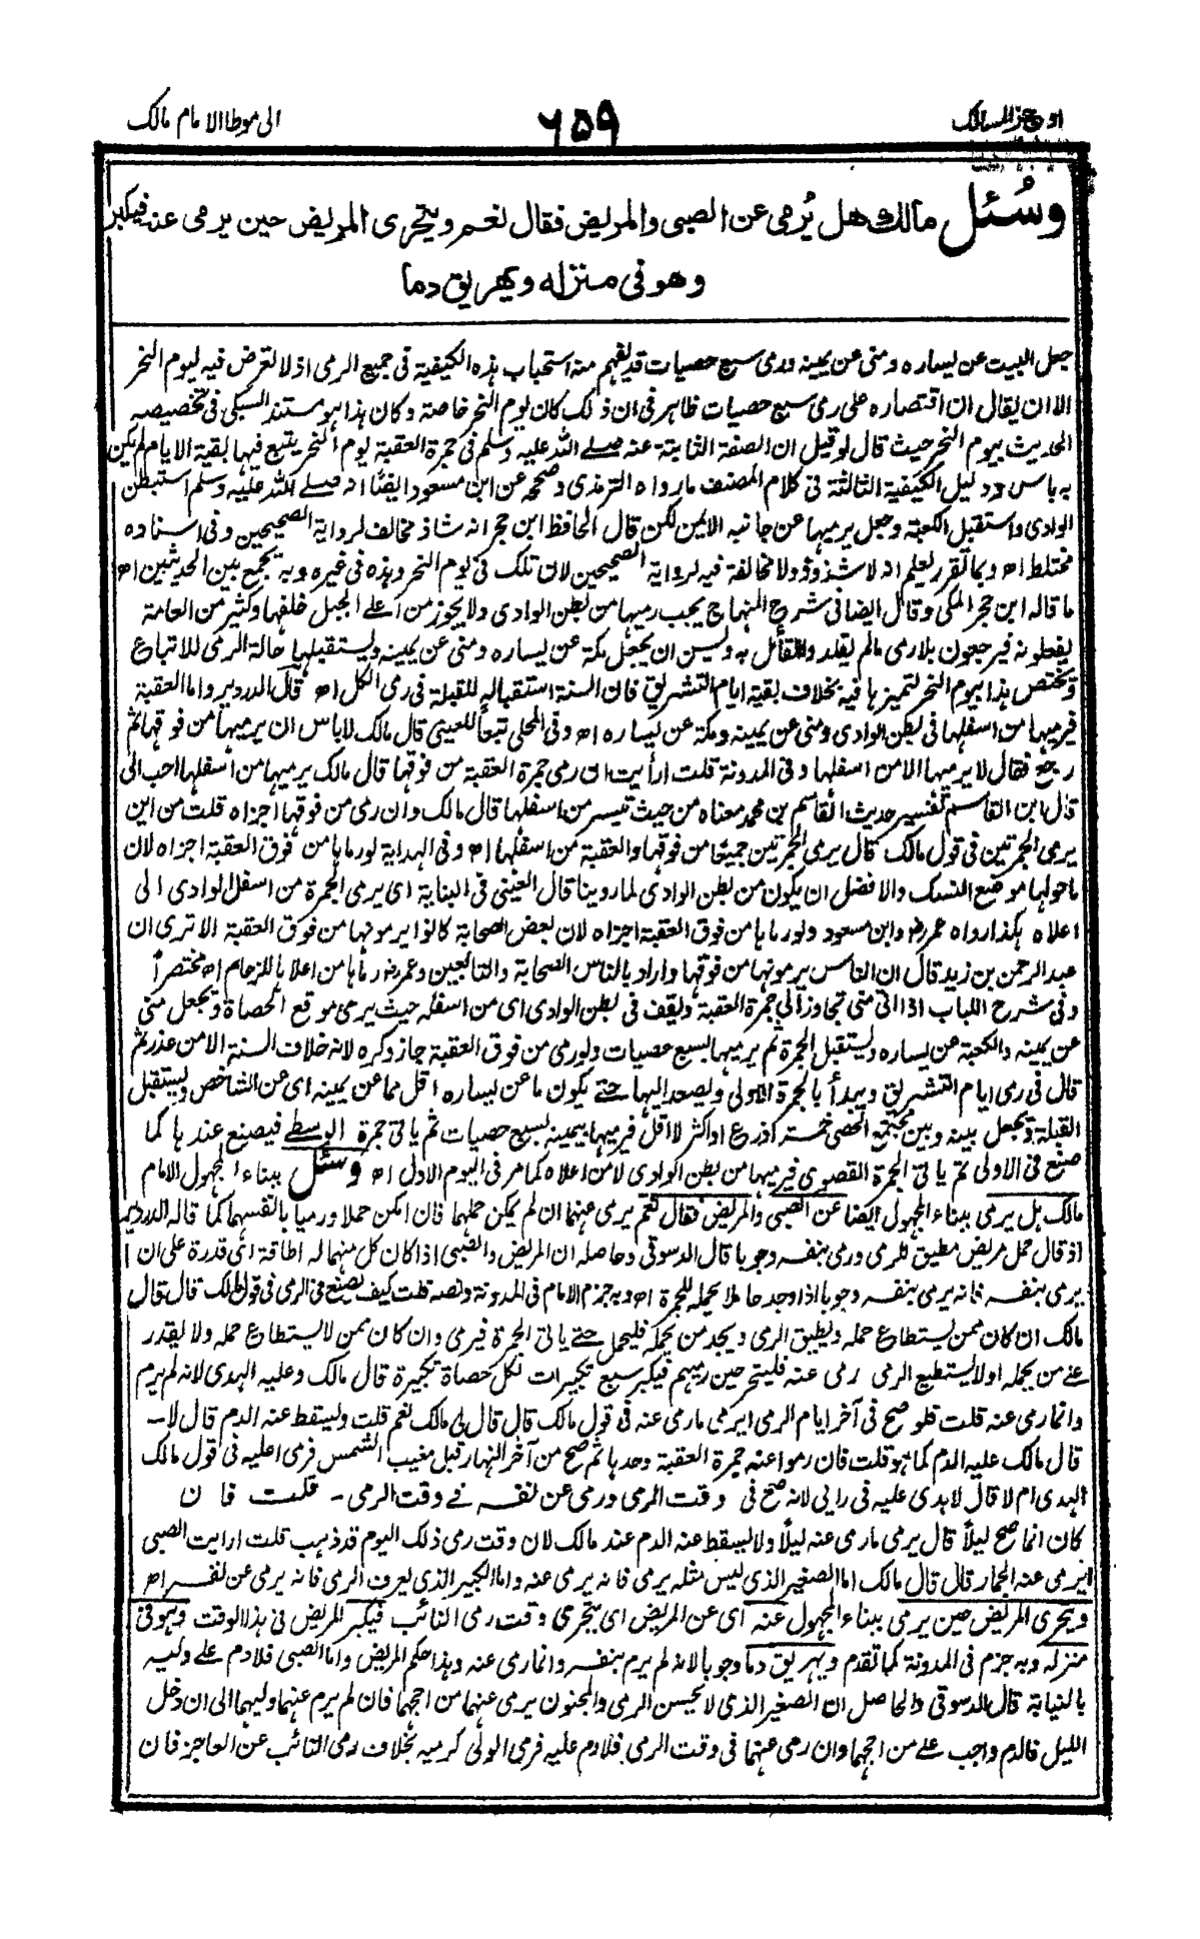 اوجز المسالك
٦٥٩
الى موطا الامام مالك
وسُئل مالك هل يُرمى عن الصبى والمريض فقال نعم ويتحرى المريض حين يرمى عنه فيكبر
وهو فى منزله ويهريق دما
جعل البيت عن يساره ومنى عن يمينه ورمى سبع حصيات قد يفهم منه استحباب هذه الكيفية فى جميع الرمى اذ لا تعرض فيه ليوم النحر
الا ان يقال ان اقتصاره على رمى سبع حصيات ظاهر فى ان ذلك كان يوم النحر خاصة وكان هذا هو مستند السبكى فى تخصيصه
الحديث بيوم النحر حيث قال لو قيل ان الصفة الثابتة عنه صلے الله عليه وسلم فى جمرة العقبة يوم النحر يتبع فيها بقية الايام لم يكن
به باس ودليل الكيفية الثالثة فى كلام المصنف ما رواه الترمذى وصححه عن ابن مسعود ايضًا انه صلے الله عليه وسلم استبطن
الوادى واستقبل الكعبة وجعل يرميها عن جانبه الايمن لكن قال الحافظ ابن حجر انه شاذ مخالف لرواية الصحيحين وفى اسناده
مختلط اه وبما تقرر يعلم انه لا شذوذ ولا مخالفة فيه لرواية الصحيحين لان تلك فى يوم النحر وهذه فى غيره وبه يجمع بين الحديثين اه
ما قاله ابن حجر المكى وقال ايضا فى شرح المنهاج يجب رميها من بطن الوادى ولا يجوز من اعلے الجبل خلفها وكثير من العامة
يفعلونه فيرجعون بلا رمى ما لم يقلد والقائل به وليسن ان يجعل مكة عن يساره ومنى عن يمينه ويستقبلها حالة الرمى للاتباع
وتختص هذا بيوم النحر لتميزها فيه بخلاف بقية ايام التشريق فان السنة استقباله للقبلة فى رمى الكل اه قال الدردير واما العقبة
فيرميها من اسفلها فى بطن الوادى ومنى عن يمينه ومكة عن يساره اه وفى المحلى تبعاً للعينى قال مالك لا باس ان يرميها من فوقها ثم
رجع فقال لا يرميها الا من اسفلها وفى المدونة قلت ارأيت ان رمى جمرة العقبة من فوقها قال مالك يرميها من اسفلها احب الى
قال ابن القاسم تفسير حديث القاسم بن محمد معناه من حيث تيسر من اسفلها قال مالك وان رمى من فوقها اجزاه قلت من اين
يرمى الجمرتين فى قول مالك قال يرمى الجمرتين جميعًا من فوقها والعقبة من اسفلها اه وفى الهداية لو رماها من فوق العقبة اجزاه لان
ما حولها موضع النسك والافضل ان يكون من بطن الوادى لما روينا قال العينى فى البناية اى يرمى الجمرة من اسفل الوادى الى
اعلاه هكذا رواه عمر رض وابن مسعود ولو رماها من فوق العقبة اجزاه لان بعض الصحابة كانوا يرمونها من فوق العقبة الا ترى ان
عبد الرحمن بن زيد قال ان الناس يرمونها من فوقها واراد بالناس الصحابة والتابعين وعمر رض رماها من اعلاها للزحام اه مختصراً
وفى شرح اللباب اذا اتى منى تجاوز الى جمرة العقبة ويقف فى بطن الوادى اى من اسفله حيث يرى موقع الحصاة ويجعل منى
عن يمينه والكعبة عن يساره ويستقبل الجمرة ثم يرميها بسبع حصيات ولو رمى من فوق العقبة جاز وكره لانه خلاف السنة الا من عذر ثم
قال فى رمى ايام التشريق ويبدأ بالجمرة الاولى ويصعد اليها حتے يكون ما عن يساره اقل مما عن يمينه اى عن الشاخص ويستقبل
القبلة ويجعل بينه وبين مجتمع الحصى خمسة كذرع او اكثر لا اقل فيرميها بيمينه بسبع حصيات ثم ياتى جمرة الوسطے فيصنع عندها كما
صنع فى الاولى ثم ياتى الجمرة القصوى فيرميها من بطن الوادى لا من اعلاه كما مر فى اليوم الاول اه وسئل ببناء المجهول الامام
مالك هل يرمى ببناء المجهول ايضا عن الصبى والمريض فقال نعم يرمى عنهما ان لم يمكن حملهما فان امكن حملا ورميا بانفسهما كما قاله الدردير
اذ قال حمل مريض مطيق للرمى ورمى بنفسه وجوبا قال الدسوقى وحاصله ان المريض والصبى اذا كان كل منهما له اطاقة اى قدرة على ان
يرمى بنفسه فانه يرمى بنفسه وجوبا اذا وجد حاملا يحمله للجمرة اه وبه جزم الامام فى المدونة ونصه قلت كيف يصنع فى الرمى فى قول مالك قال قال
مالك ان كان ممن يستطاع حمله ويطيق الرمى ويجد من يحمله فليحمل حتے ياتى الجمرة فيرمى وان كان ممن لا يستطاع حمله ولا يقدر
علے من يحمله او لا يستطيع الرمى رمى عنه فليتحر حين رميهم فيكبر سبع تكبيرات لكل حصاة تكبيرة قال مالك وعليه الهدى لانه لم يرم
وانما رمى عنه قلت فلو صح فى آخر ايام الرمى ايرمى ما رمى عنه فى قول مالك قال قال لى مالك نعم قلت ويسقط عنه الدم قال لا-
قال مالك عليه الدم كما هو قلت فان رموا عنه جمرة العقبة وحدها ثم صح من آخر النهار قبل مغيب الشمس فرمى اعليه فى قول مالك
الهدى ام لا قال لا هدى عليه فى رايى لانه صح فى وقت الرمى ورمى عن نفسه فى وقت الرمى - قلت فان
كان انما صح ليلًا قال يرمى ما رمى عنه ليلًا ولا يسقط عنه الدم عند مالك لان وقت رمى ذلك اليوم قد ذهب قلت ارايت الصبى
ايرمى عنه الجمار قال قال مالك اما الصغير الذى ليس مثله يرمى فانه يرمى عنه واما الكبير الذى يعرف الرمى فانه يرمى عن نفسه اه
ويتحرى المريض حين يرمى ببناء المجهول عنه اى عن المريض اى يتحرى وقت رمى النائب فيكبر المريض فى هذا الوقت وهو فى
منزله وبه جزم فى المدونة كما تقدم ويهريق دما وجوبا لانه لم يرم بنفسه وانما رمى عنه وهذا حكم المريض واما الصبى فلا دم علے وليه
بالنيابة قال الدسوقى والحاصل ان الصغير الذى لا يحسن الرمى والمجنون يرمى عنهما من احجهما فان لم يرم عنهما وليهما الى ان دخل
الليل فالدم واجب علے من احجهما وان رمى عنهما فى وقت الرمى فلا دم عليه فرمى الولى كرميه بخلاف رمى النائب عن العاجز فان